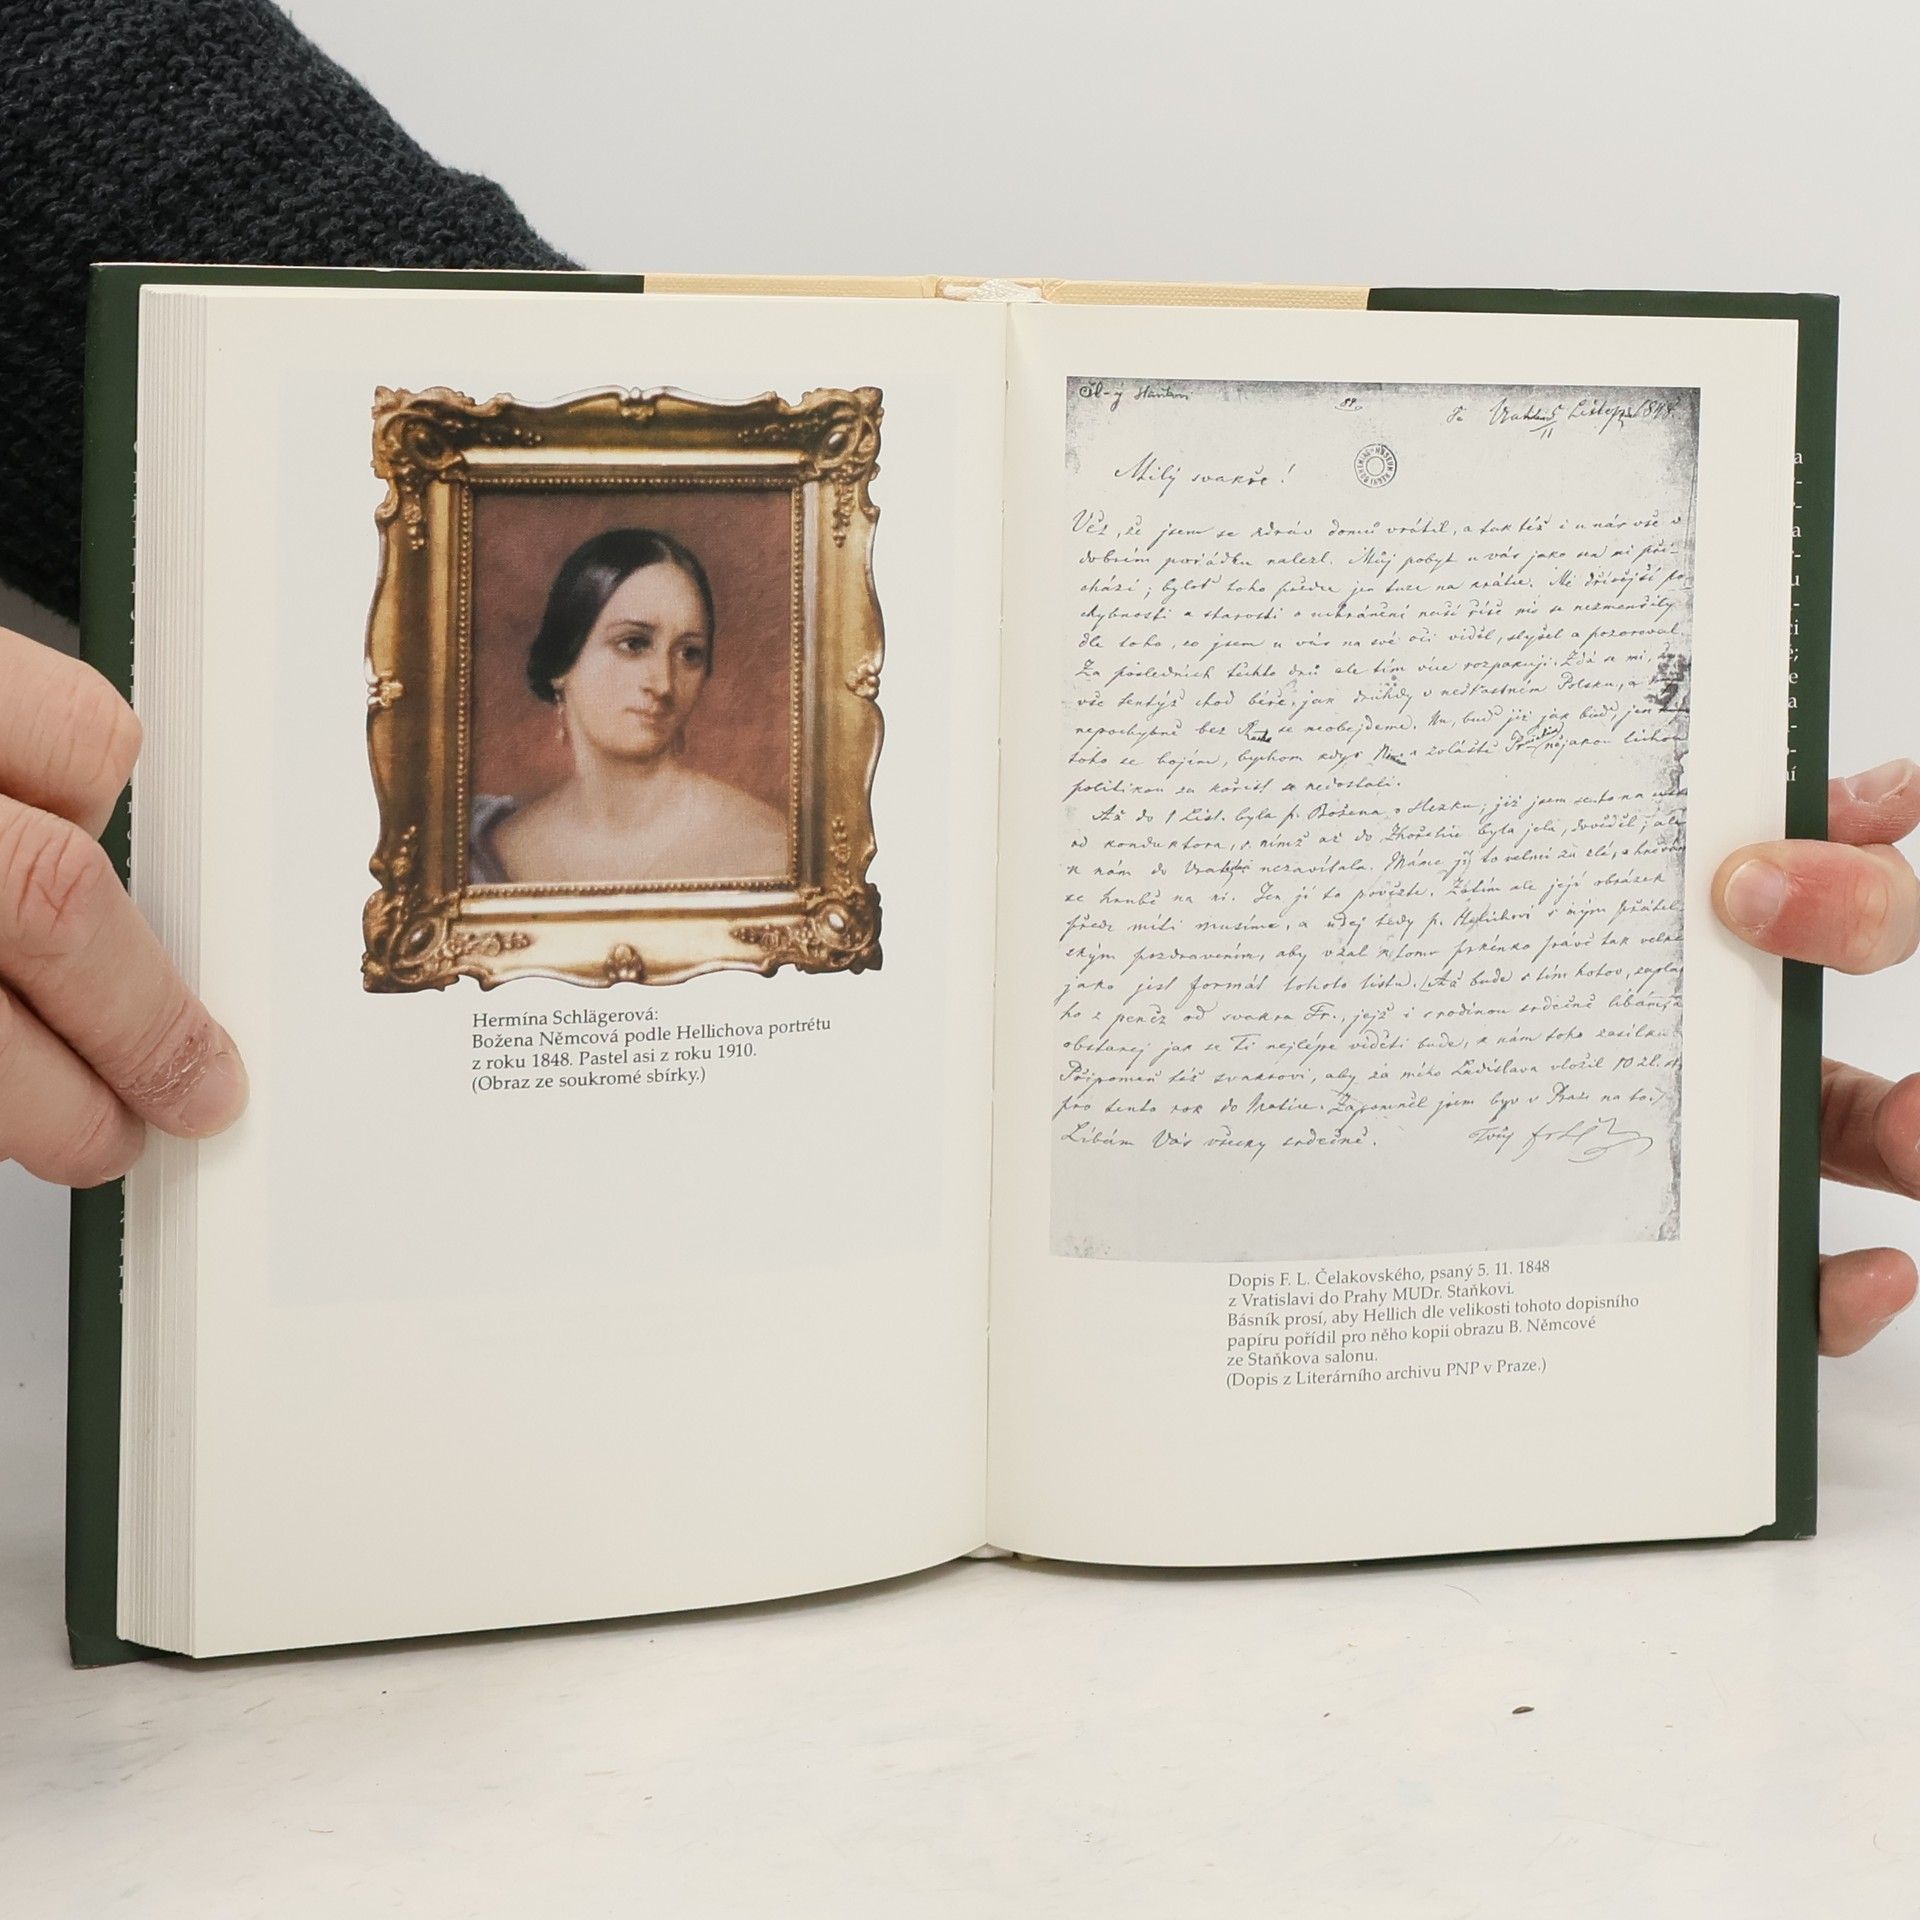 Hermína Schlägerová:
Božena Němcová podle Hellichova portrétu
z roku 1848. Pastel asi z roku 1910.
(Obraz ze soukromé sbírky.)
Milý svakře!
Věz, že jsem se zdráv domů vrátil, a tak též i u nás vše v
dobrém pořádku nalezl. Můj pobyt u vás jako sen mi při-
chází; byloť toho předce jen tuze na krátce. Mé dřívější po-
chybnosti a starosti o uchránění naší říše nic se nezmenšily
dle toho, co jsem u vás na své oči viděl, slyšel a pozoroval.
Za posledních těchto dnů ale tím více rozpakuji. Zdá se mi,
vše tentýž chod béře, jak druhdy v nešťastném Polsku, a
nepochybně bez se neobejdeme. Nu, buď již jak buď, jen
toho se bojím, bychom kdys a zvláště nějakou lichou
politikou za kořist se nedostali.
Až do 1 List. byla p. Božena v Hlezku; již jsem
od konduktora, s nímž až do Zhořelic byla jela, dověděl; ale
k nám do nezavítala. Máme jí to velmi za zlé, a hněvám
se hrubě na ni. Jen jí to povězte. Zatím ale její obrázek
předc míti musíme, a udej tedy p. Helichovi s mým přátel-
ským pozdravením, aby vzal k tomu prkénko právě tak velké
jako jest formát tohoto listu. (Až bude s tím hotov,
ho z peněz od svakra Fr., jejž i s rodinou srdečně líbáme, a
obstarej jak se Ti nejlépe viděti bude, k nám toho zasílku.
Připomeň též svakrovi, aby za mého Ladislava vložil 10 zl. st.
pro tento rok do Matice. Zapomněl jsem byv v Praze na to.)
Líbám Vás všecky srdečně. Tvůj
Dopis F. L. Čelakovského, psaný 5. 11. 1848
z Vratislavi do Prahy MUDr. Staňkovi.
Básník prosí, aby Hellich dle velikosti tohoto dopisního
papíru pořídil pro něho kopii obrazu B. Němcové
ze Staňkova salonu.
(Dopis z Literárního archivu PNP v Praze.)